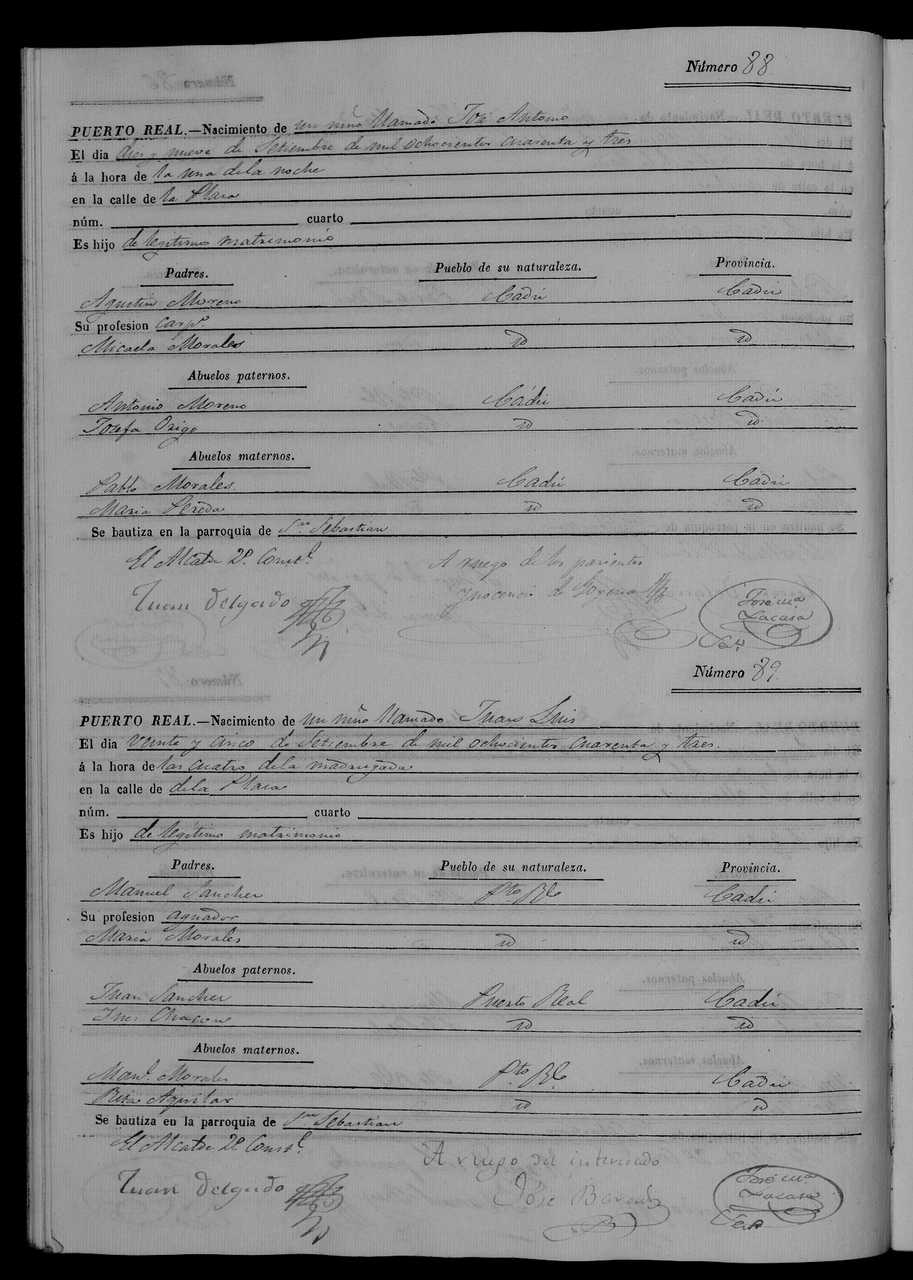 Número 88
PUERTO REAL.—Nacimiento de un niño llamado José Antonio
El dia diez y nueve de Setiembre de mil ochocientos cuarenta y tres
á la hora de la una de la noche
en la calle de la Plaza
núm. cuarto
Es hijo de legitimo matrimonio
Padres. Pueblo de su naturaleza. Provincia.
Agustin Moreno Cadiz Cadiz
Su profesion Carpo.
Micaela Morales id id
Abuelos paternos.
Antonio Moreno Cádiz Cadiz
Josefa id id
Abuelos maternos.
Pablo Morales Cadiz Cadiz
Maria id id
Se bautiza en la parroquia de Sn Sebastian
El Alcalde 2º Constl. A ruego de los parientes
Juan Delgado José ma
Zacasa
Número 89
PUERTO REAL.—Nacimiento de un niño llamado Juan Luis
El dia veinte y cinco de Setiembre de mil ochocientos cuarenta y tres.
á la hora de las cuatro de la madrugada
en la calle de de la Plaza
núm. cuarto
Es hijo de legitimo matrimonio
Padres. Pueblo de su naturaleza. Provincia.
Manuel Sanchez Pto Rl Cadiz
Su profesion aguador
Maria Morales id id
Abuelos paternos.
Juan Sanchez Puerto Real Cadiz
Ines Chacon id id
Abuelos maternos.
Manl. Morales Pto Rl Cadiz
Rita Aguilar id id
Se bautiza en la parroquia de Sn Sebastian
El Alcalde 2º Constl. A ruego del interesado
Juan Delgado José José ma
Zacasa